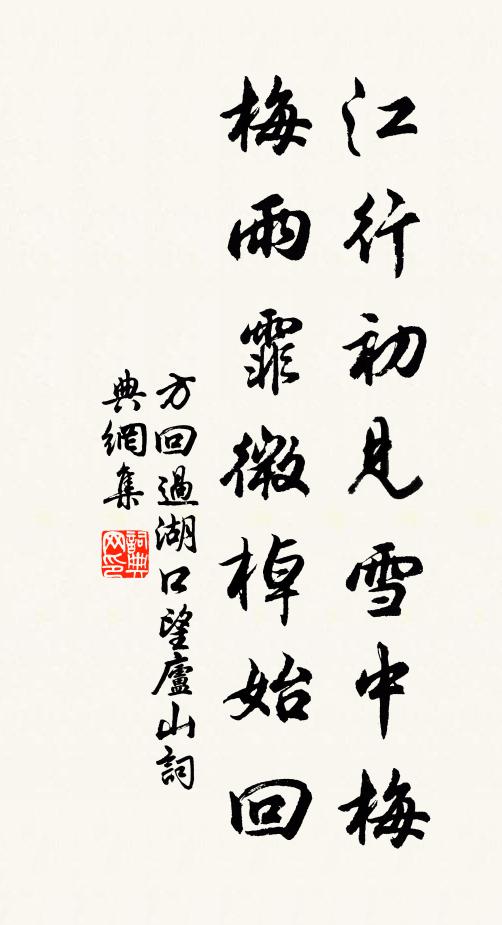 江行初見雪中梅
梅雨霏微棹始回
方回過湖口望廬山詞
典網集
詞典
网印